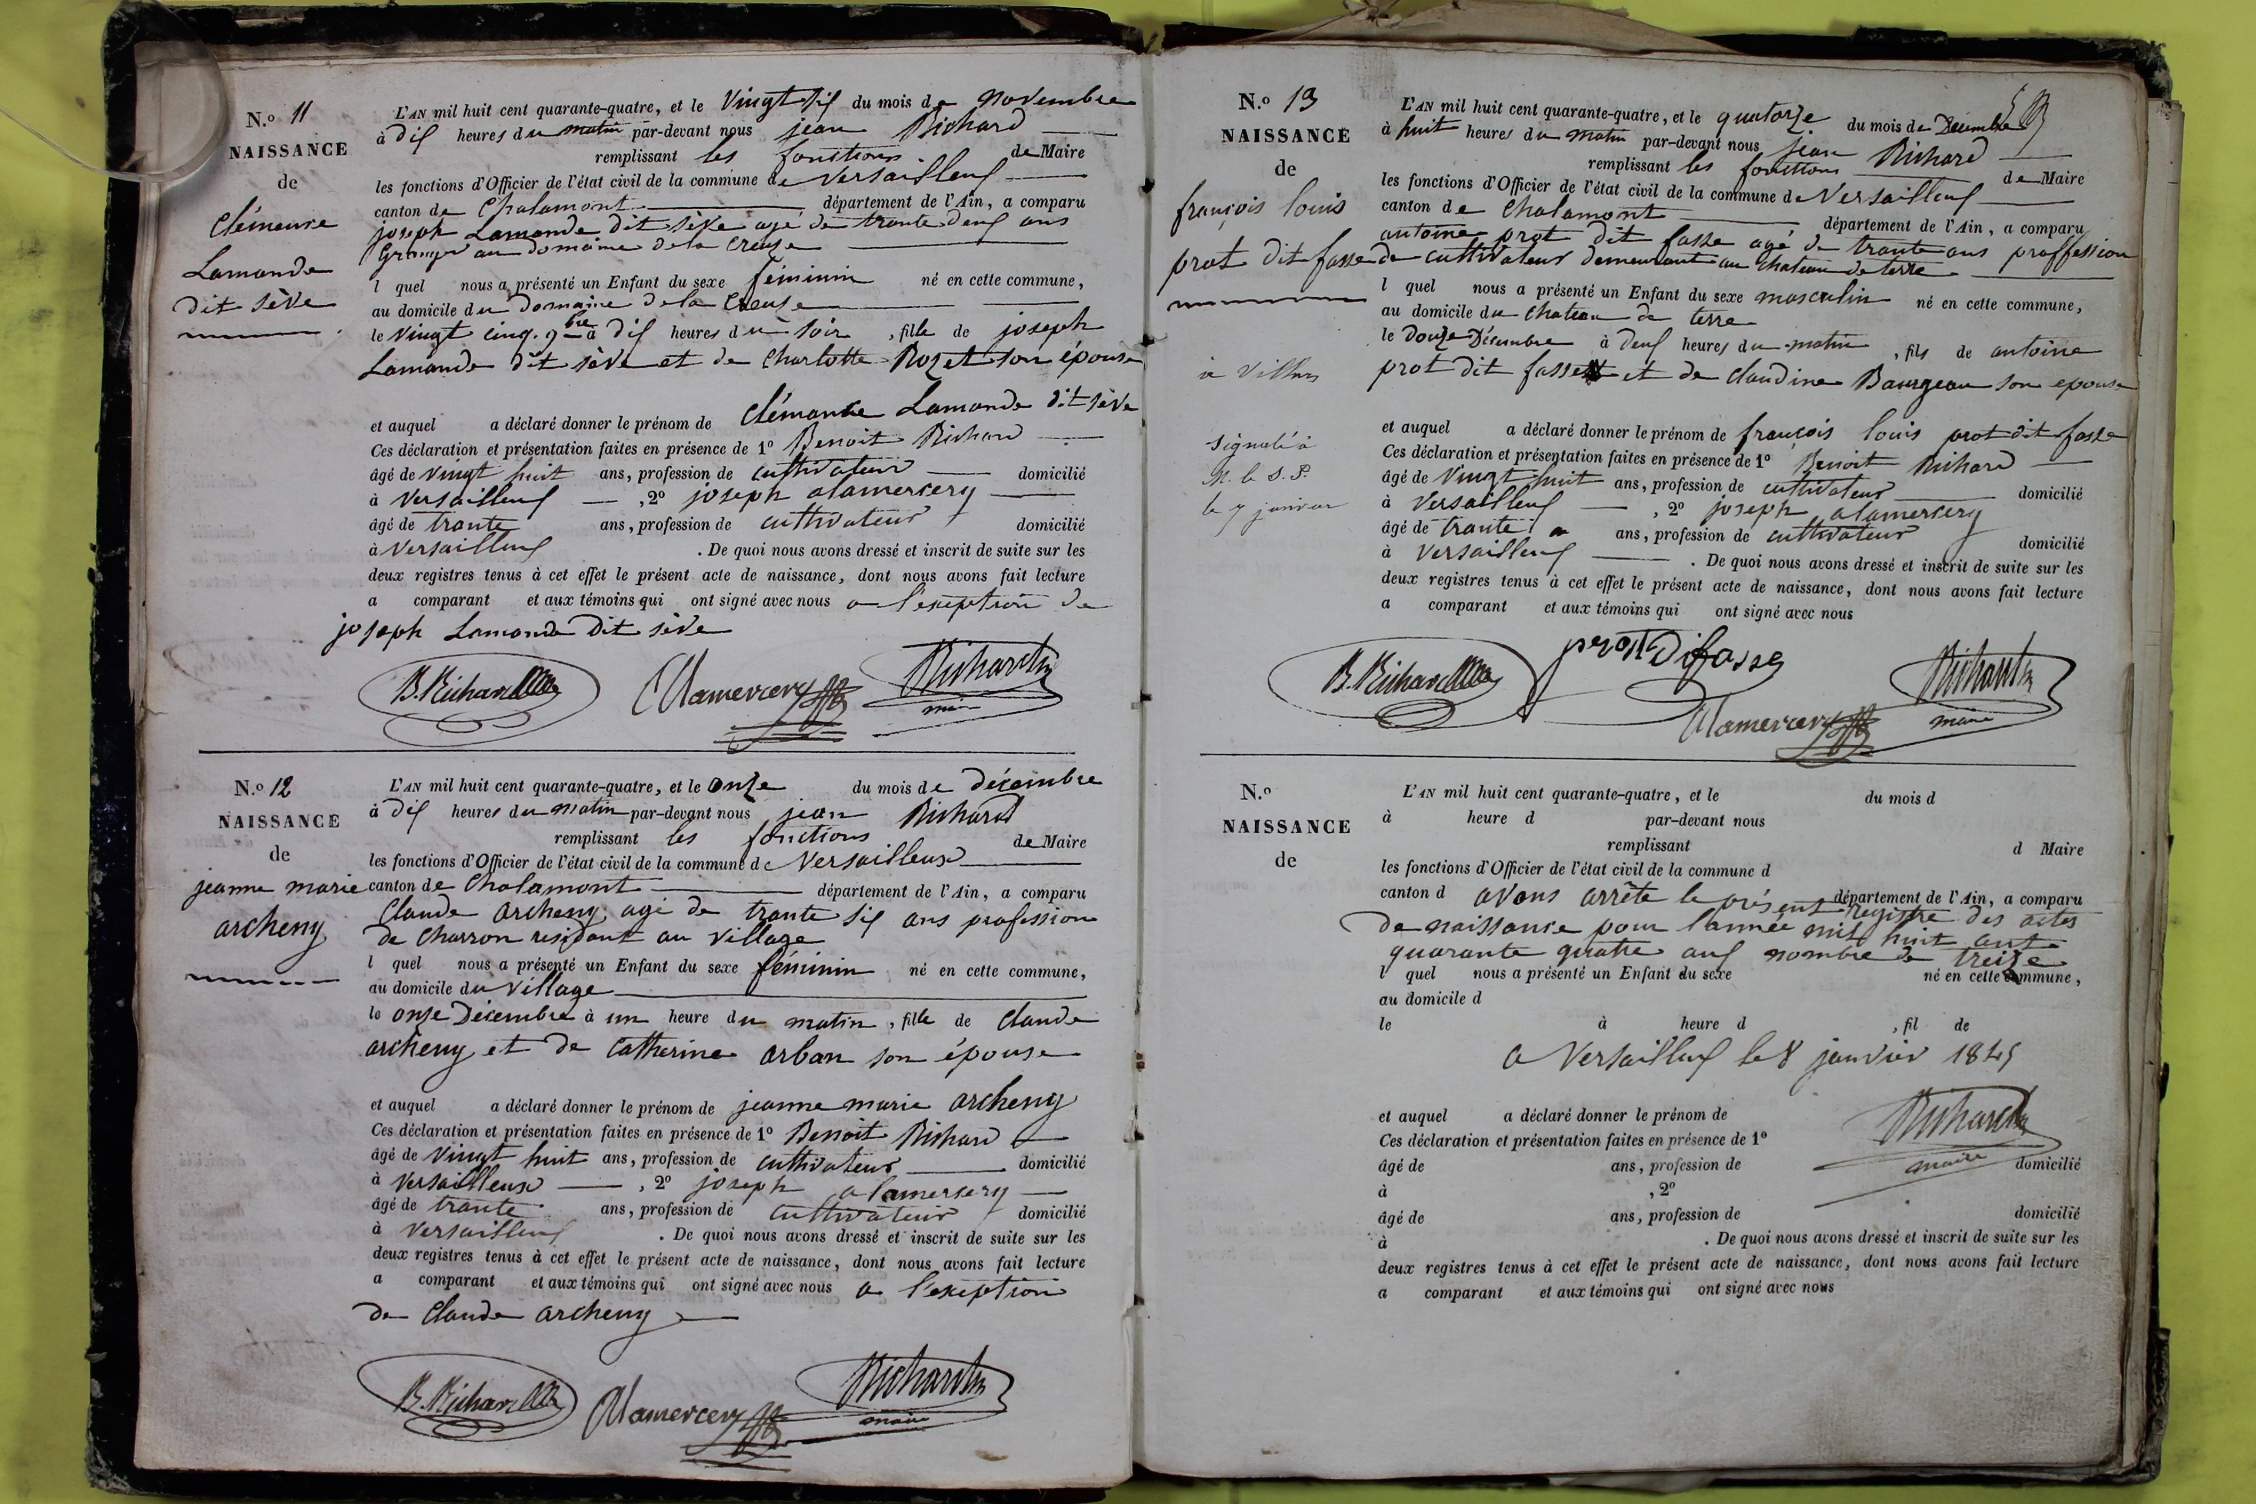 N.o 11
NAISSANCE
de
Clémence
Lamande
dit sève
L'AN mil huit cent quarante-quatre, et le vingt six du mois de novembre
à dix heures du matin par-devant nous jean Richard
remplissant les fonctions de Maire
les fonctions d'Officier de l'état civil de la commune de Versailleux
canton de Chalamont département de l'Ain, a comparu
joseph Lamande dit sève agé de trante deux ans
Granger au domaine de la Creuse
l quel nous a présenté un Enfant du sexe féminin né en cette commune,
au domicile du Domaine de la Creuse
le vingt cinq 9bre à dix heures du soir, fille de joseph
Lamande dit sève et de Charlotte Rozet son épouse
et auquel a déclaré donner le prénom de Clémance Lamande dit sève
Ces déclaration et présentation faites en présence de 1o Benoit Richard
âgé de vingt huit ans, profession de cultivateur domicilié
à Versailleux, 2o joseph alamercery
âgé de trante ans, profession de cultivateur domicilié
à Versailleux. De quoi nous avons dressé et inscrit de suite sur les
deux registres tenus à cet effet le présent acte de naissance, dont nous avons fait lecture
a comparant et aux témoins qui ont signé avec nous a l'exeption de
joseph Lamande Dit sève
B. Richard Alamercery Richard
maire
N.o 12
NAISSANCE
de
jeanne marie
archeny
L'AN mil huit cent quarante-quatre, et le onze du mois de décembre
à dix heures du matin par-devant nous jean Richard
remplissant les fonctions de Maire
les fonctions d'Officier de l'état civil de la commune de Versailleux
canton de Chalamont département de l'Ain, a comparu
Claude archeny agé de trante six ans profession
de charron residant au village
l quel nous a présenté un Enfant du sexe féminin né en cette commune,
au domicile du village
le onze Décembre à un heure du matin, fille de claude
archeny et de Catherine arban son épouse
et auquel a déclaré donner le prénom de jeanne marie archeny
Ces déclaration et présentation faites en présence de 1o Benoit Richard
âgé de vingt huit ans, profession de cultivateur domicilié
à Versailleux, 2o joseph alamercery
âgé de trante ans, profession de cultivateur domicilié
à Versailleux. De quoi nous avons dressé et inscrit de suite sur les
deux registres tenus à cet effet le présent acte de naissance, dont nous avons fait lecture
a comparant et aux témoins qui ont signé avec nous a l'exeption
de Claude archeny
B. Richard Alamercery Richard
maire
N.o 13
NAISSANCE
de
françois louis
prot dit fasse
a Villars
signalé à
le 7 janvier
L'AN mil huit cent quarante-quatre, et le quatorze du mois de Décembre
à huit heures du matin par-devant nous jean Richard
remplissant les fonctions de Maire
les fonctions d'Officier de l'état civil de la commune de Versailleux
canton de Chalamont département de l'Ain, a comparu
antoine prot dit fasse agé de trante ans proffession
de cultivateur demeurant au chateau de terre
l quel nous a présenté un Enfant du sexe masculin né en cette commune,
au domicile du chateau de terre
le douze Décembre à deux heures du matin, fils de antoine
prot dit fasse et de claudine Baurgeau son epouse
et auquel a déclaré donner le prénom de françois louis prot dit fasse
Ces déclaration et présentation faites en présence de 1o Benoit Richard
âgé de vingt huit ans, profession de cultivateur domicilié
à Versailleux, 2o joseph alamercery
âgé de trante ans, profession de cultivateur domicilié
à Versailleux. De quoi nous avons dressé et inscrit de suite sur les
deux registres tenus à cet effet le présent acte de naissance, dont nous avons fait lecture
a comparant et aux témoins qui ont signé avec nous
B. Richard prost Difasse Richard
Alamercery maire
N.o
NAISSANCE
de
L'AN mil huit cent quarante-quatre, et le du mois d
à heure d par-devant nous
remplissant d Maire
les fonctions d'Officier de l'état civil de la commune d
canton d avons arrête le présent département de l'Ain, a comparu
registre des actes
de naissance pour l'année mil huit cent
quarante quatre aux nombre de treize
l quel nous a présenté un Enfant du sexe né en cette commune,
au domicile d
le à heure d, fil de
a Versailleux le 8 janvier 1845
et auquel a déclaré donner le prénom de
Richard
Ces déclaration et présentation faites en présence de 1o
maire
âgé de ans, profession de domicilié
à, 2o
âgé de ans, profession de domicilié
à. De quoi nous avons dressé et inscrit de suite sur les
deux registres tenus à cet effet le présent acte de naissance, dont nous avons fait lecture
a comparant et aux témoins qui ont signé avec nous